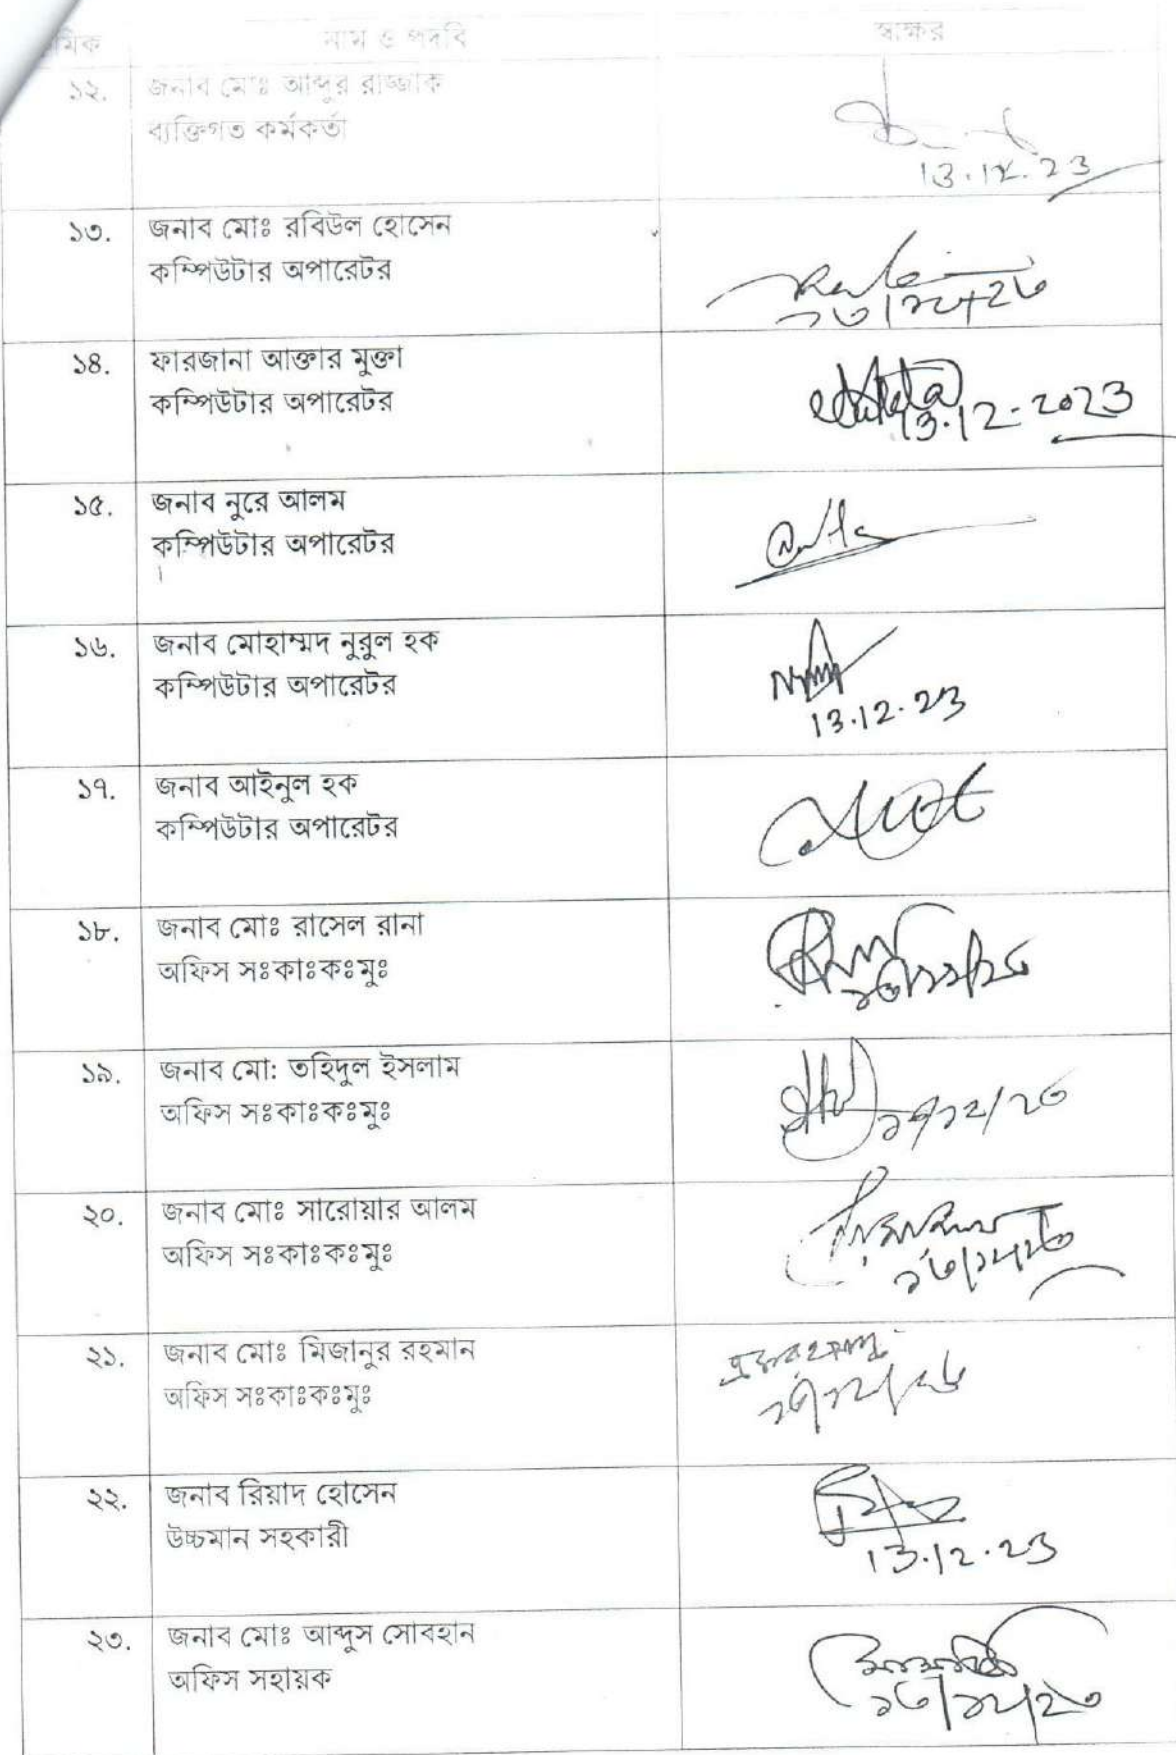 মিক নাম ও পদবি স্বাক্ষর
১২. জনাব মোঃ আব্দুর রাজ্জাক
ব্যক্তিগত কর্মকর্তা
13.12.23
১৩. জনাব মোঃ রবিউল হোসেন
কম্পিউটার অপারেটর
১৪. ফারজানা আক্তার মুক্তা
কম্পিউটার অপারেটর
13.12.2023
১৫. জনাব নুরে আলম
কম্পিউটার অপারেটর
১৬. জনাব মোহাম্মদ নুরুল হক
কম্পিউটার অপারেটর
13.12.23
১৭. জনাব আইনুল হক
কম্পিউটার অপারেটর
১৮. জনাব মোঃ রাসেল রানা
অফিস সঃকাঃকঃমুঃ
১৯. জনাব মো: তহিদুল ইসলাম
অফিস সঃকাঃকঃমুঃ
২০. জনাব মোঃ সারোয়ার আলম
অফিস সঃকাঃকঃমুঃ
২১. জনাব মোঃ মিজানুর রহমান
অফিস সঃকাঃকঃমুঃ
২২. জনাব রিয়াদ হোসেন
উচ্চমান সহকারী
13.12.23
২৩. জনাব মোঃ আব্দুস সোবহান
অফিস সহায়ক
১৩/১২/২৩